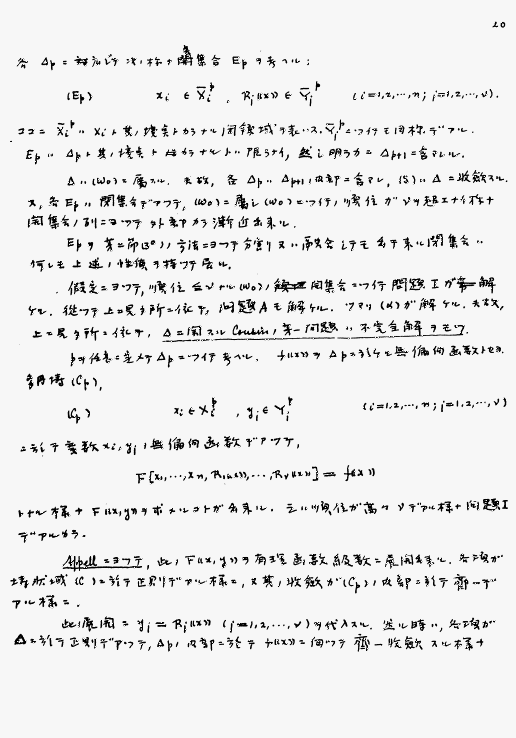 20
各 Δp ニ対シテ次ノ様ナ閉集合 Ep ヲ考ヘル:
(Ep) xi ∈ X̄i^p , Rj((x)) ∈ Ȳj^p (i=1,2,…,n; j=1,2,…,ν).
ココニ X̄i^p ハ Xi^p ト其ノ境界トカラナル閉領域ヲ表ハス. Ȳj^p ニツイテモ同様デアル.
Ep ハ Δp ト其ノ境界トカラナルトハ限ラナイ, 然シ明ラカニ Δp+1 ニ含マレル.
Δ ハ (W0) ニ属スル. 夫故, 各 Δp ハ Δp+1 ノ内部ニ含マレ, ハ Δ ニ収斂スル.
又, 各 Ep ハ閉集合デアツテ, (W0) ニ属シ (W0) ニツイテノ順位ガ ν ヲ越エナイ様ナ
閉集合ノ列ニヨツテ外部カラ漸近出来ル.
Ep ヲ第二節ノ方法ニヨツテ分割又ハ デモ出来ル閉集合ハ
何レモ上述ノ性質ヲ持ツテ居ル.
仮定ニヨツテ, 順位 ≦ν ナル (W0) ノ閉集合ニツイテ問題 I ガ解
ケル. 従ツテ上ニ見タ所ニ依テ, 問題 A モ解ケル. ツマリ (α) ガ解ケル. 夫故,
上ニ見タ所ニ依テ, Δ ニ関スル Cousin ノ第一問題ハ不完全解ヲモツ.
p ヲ任意ニ定メテ Δp ニツイテ考ヘル. f((x)) ヲ Δp ニ於ケル無偏何函数トセヨ.
(Cp),
(Cp) xi ∈ Xi^p , yj ∈ Yj^p (i=1,2,…,n; j=1,2,…,ν)
ニ於テ変数 xi, yj ノ無偏何函数デアツテ,
F[x1,…,xn, R1((x)),…,Rν((x))] = f((x))
トナル様ナ F((x,y)) ヲ求メルコトガ出来ル. 之ハ順位ガ高々 ν デアル様ナ問題 I
デアルカラ.
Appell ニヨツテ, 此ノ F((x,y)) ヲ有理函数級数ニ展開出来ル. 各項ガ
塔状域 (C) ニ於テ正則デアル様ニ, 又其ノ収斂ガ (Cp) ノ内部ニ於テ斉一デ
アル様ニ.
此ノ展開ニ yj = Rj((x)) (j=1,2,…,ν) ヲ代入スル. 然ル時ハ, 各項ガ
Δ ニ於テ正則デアツテ, Δp ノ内部ニ於テ f((x)) ニ向ツテ斉一収斂スル様ナ